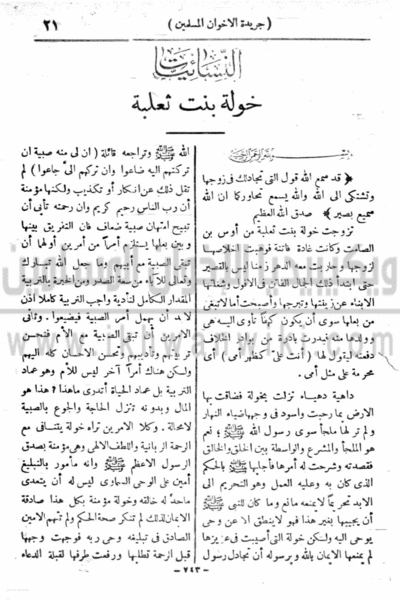 ( جريدة الاخوان المسلمين )
٢١
النسائيات
خولة بنت ثعلبة
﴿ قد سمع الله قول التى تجادلك فى زوجها
وتشتكى الى الله والله يسمع تحاوركما ان الله
سميع بصير ﴾ صدق الله العظيم
تزوجت خولة بنت ثعلبة من أوس بن
الصامت وكانت غادة فاتنة فوهبت اخلاصها
لزوجها وحاربت معه الدهر زمنا ليس بالقصير
حتى ابتذل ذلك الجمال الفاتن فى الاقول وشغلها
الابناء عن زينتها وتبرجها وأصبحت أما لاتبغى
من بعلها سوى أن يكون كهفا تأوى اليه هى
وولدها منه فبدرت بادرة من بوادر الطلاق
دفعته ليقول لها ( أنت علىّ كظهر أمى ) أى
محرمة على مثل أمى .
داهية دهياء نزلت بخولة فضاقت بها
الارض بما رحبت واسود فى وجهها ضياء النهار
ولم تر لها ملجأ سوى رسول الله ﷺ ؛ نعم
هو الملجأ والمشرع والواسطة بين الخلق والخالق
فقصدته وشرحت له أمرها فأجابها ﷺ بالحكم
الذى كان به وعليه العمل وهو التحريم الى
الابد تحريما لايمنعه مانع وما كان للنبى ﷺ
أن يجيبها بغير هذا فهو لاينطق الا عن وحى
يوحى اليه ولكن خولة التى أصيبت فى عزيزها
لم يمنعها الايمان بالله وبرسوله أن تجادل رسول
الله ﷺ وتراجعه قائلة ( ان لى منه صبية ان
تركتهم اليه ضاعوا وان تركهم الىّ جاعوا ) لم
تقل ذلك عن انكار أو تكذيب ولكنها مؤمنة
أن رب الناس رحيم كريم وان رحمته تأبى أن
تبيح امتهان صبية ضعاف فان التفريق بينها
وبين بعلها يستلزم أمرا من أمرين أولهما أن
تبقى الصبية مع أبيهم وما جعل الله تبارك
وتعالى للآباء من سعة الصدر ومن الخبرة بالتربية
المقدار الكامل لتأدية واجب التربية كاملا اذن
لابد أن يهمل أمر الصبية فيضيعوا . وثانى
الامرين أن تبقى الصبية مع الأم فتحسن
تربيتهم وتأديبهم وتحسن الاحسان كله اليهم
ولكن هناك أمر آخر ليس للأم وهو عماد
التربية بل عماد الحياة أتدرى ماهذا ؟ هذا هو
المال وبدونه تنزل الحاجة والجوع بالصبية
لامحالة . وكلا الامرين تراه خولة يتنافى مع
الرحمة الربانية واللطف الالهى وهى مؤمنة بصدق
الرسول الاعظم ﷺ وانه مأمور بالتبليغ
أمين على الوحى السماوى ليس له أن يتعدى
ماحد له خالقه وخولة مؤمنة بكل هذا صادقة
الايمان لذلك لم تنكر صحة الحكم ولم تتهم الامين
الصادق فى تبليغه وحى ربه فوجهت وجهها
قبل الرحمة تطلبها ورفعت طرفها لقبلة الدعاء
— ٧٤٣ —